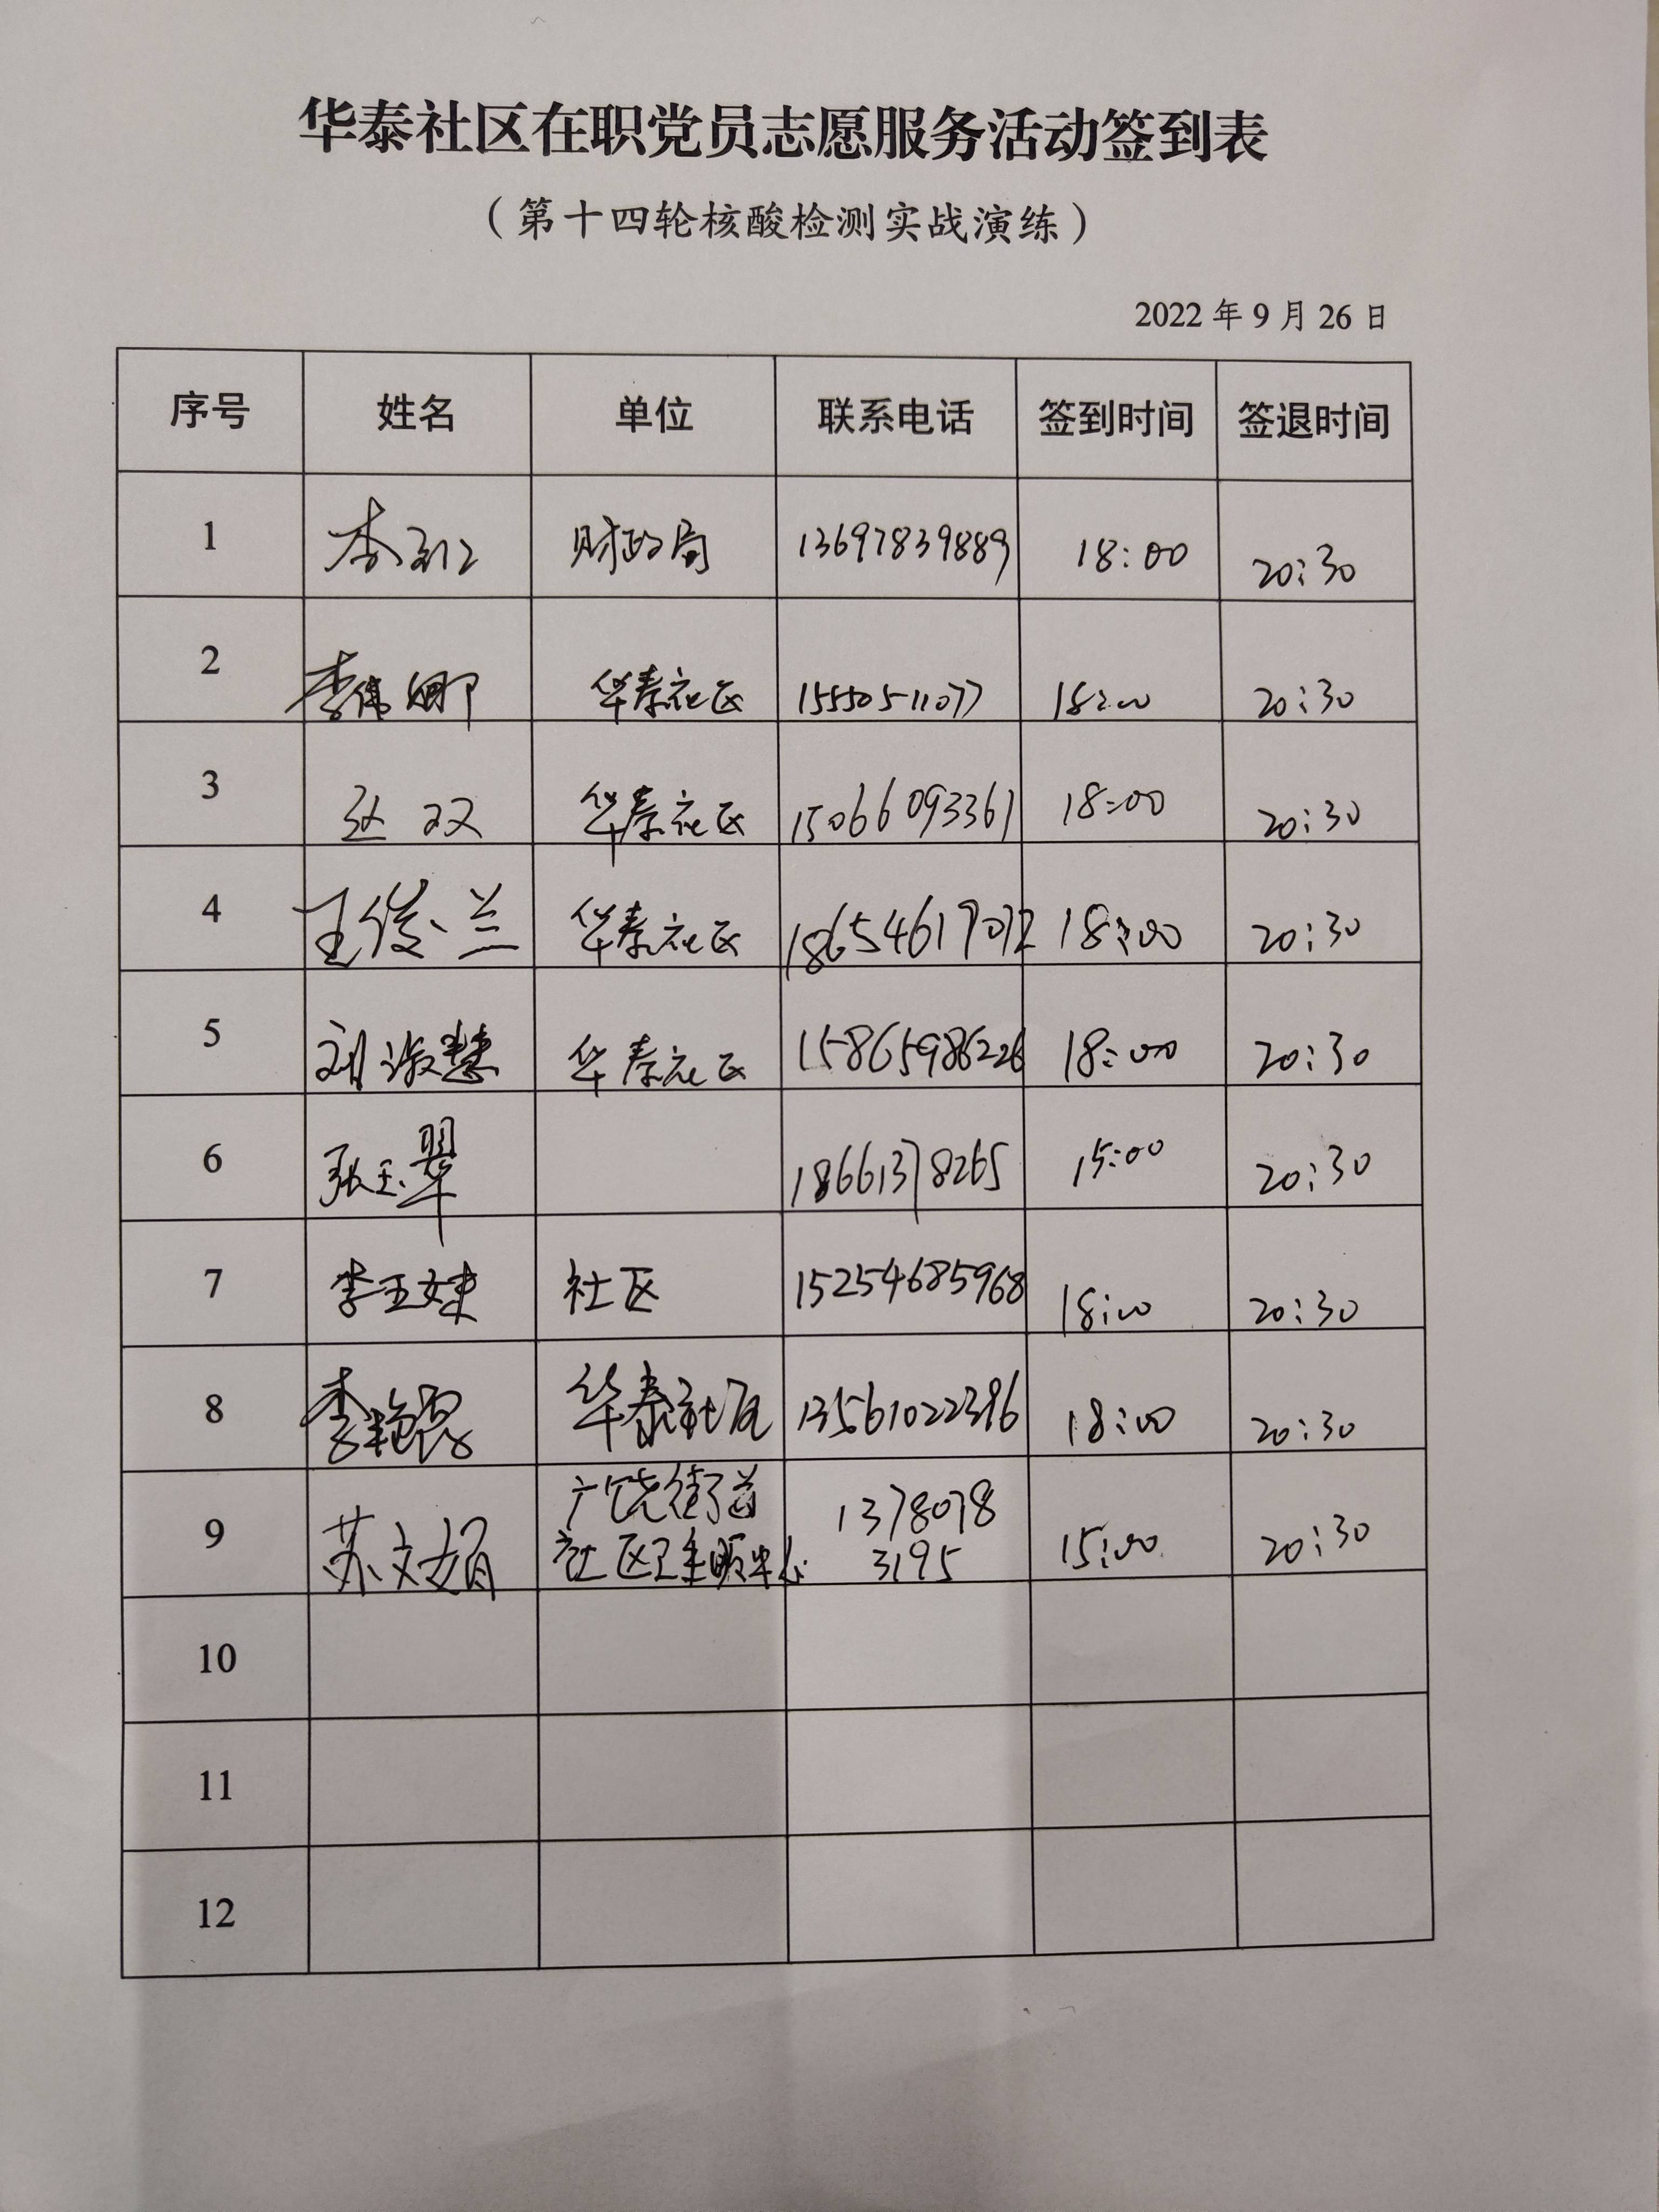 华泰社区在职党员志愿服务活动签到表
（第十四轮核酸检测实战演练）
2022 年 9 月 26 日
序号 姓名 单位 联系电话 签到时间 签退时间
1 李 财政局 13697839889 18:00 20:30
2 李伟娜 华泰社区 15550511077 18:00 20:30
3 赵双 华泰社区 15066093361 18:00 20:30
4 王俊兰 华泰社区 18654617072 18:00 20:30
5 刘淑慧 华泰社区 15865986226 18:00 20:30
6 张玉翠 18661378265 15:00 20:30
7 李玉妹 社区 15254685968 18:00 20:30
8 李艳霞 华泰社区 13561022396 18:00 20:30
9 苏文娟 广饶街道 1378078 15:00 20:30
社区卫生服务中心 3195
10
11
12